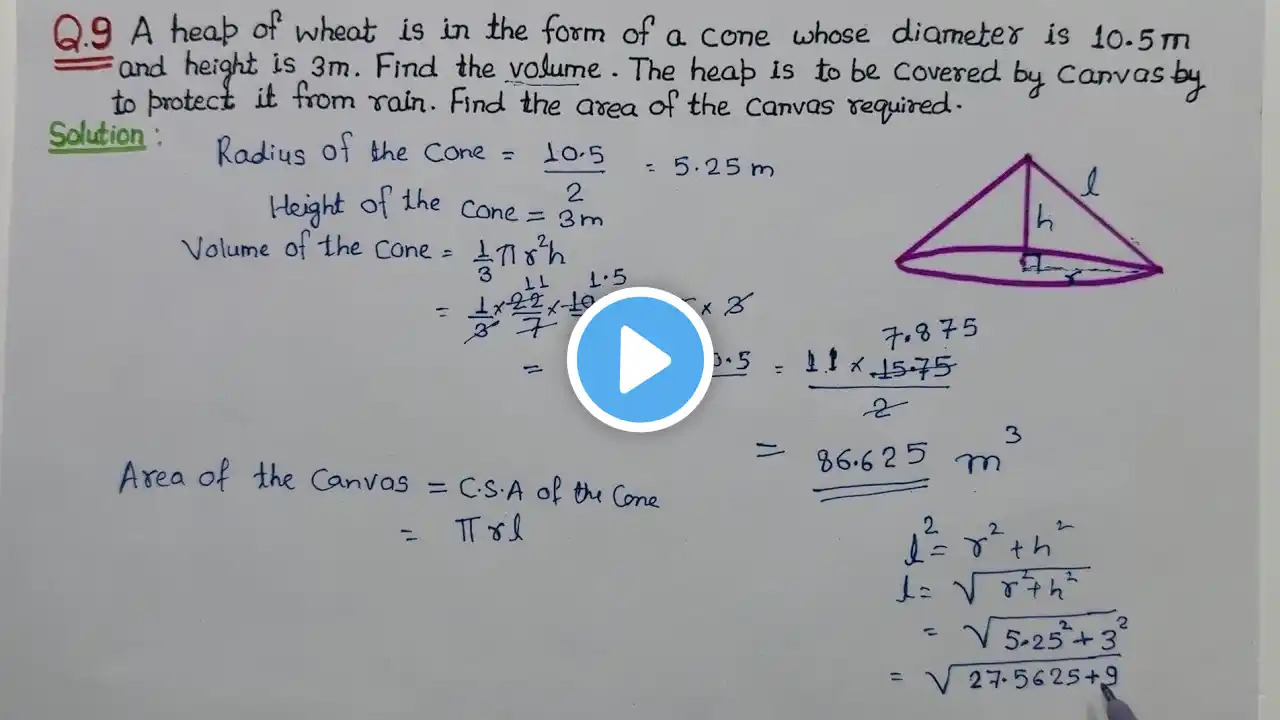 Q.9 A heap of wheat is in the form of a cone whose diameter is 10.5m
and height is 3m. Find the volume. The heap is to be covered by canvas by
to protect it from rain. Find the area of the canvas required.
Solution:
Radius of the cone = 10.5/2 = 5.25 m
Height of the cone = 3m
Volume of the cone = 1/3 πr²h
11 1.5
= 1/3 × 22/7 × 10 × 3
7.875
= 0.5 = 11 × 15.75 / 2
= 86.625 m³
Area of the canvas = C.S.A of the Cone
= πrl
l² = r² + h²
l = √r²+h²
= √5.25²+3²
= √27.5625+9
l
h
r